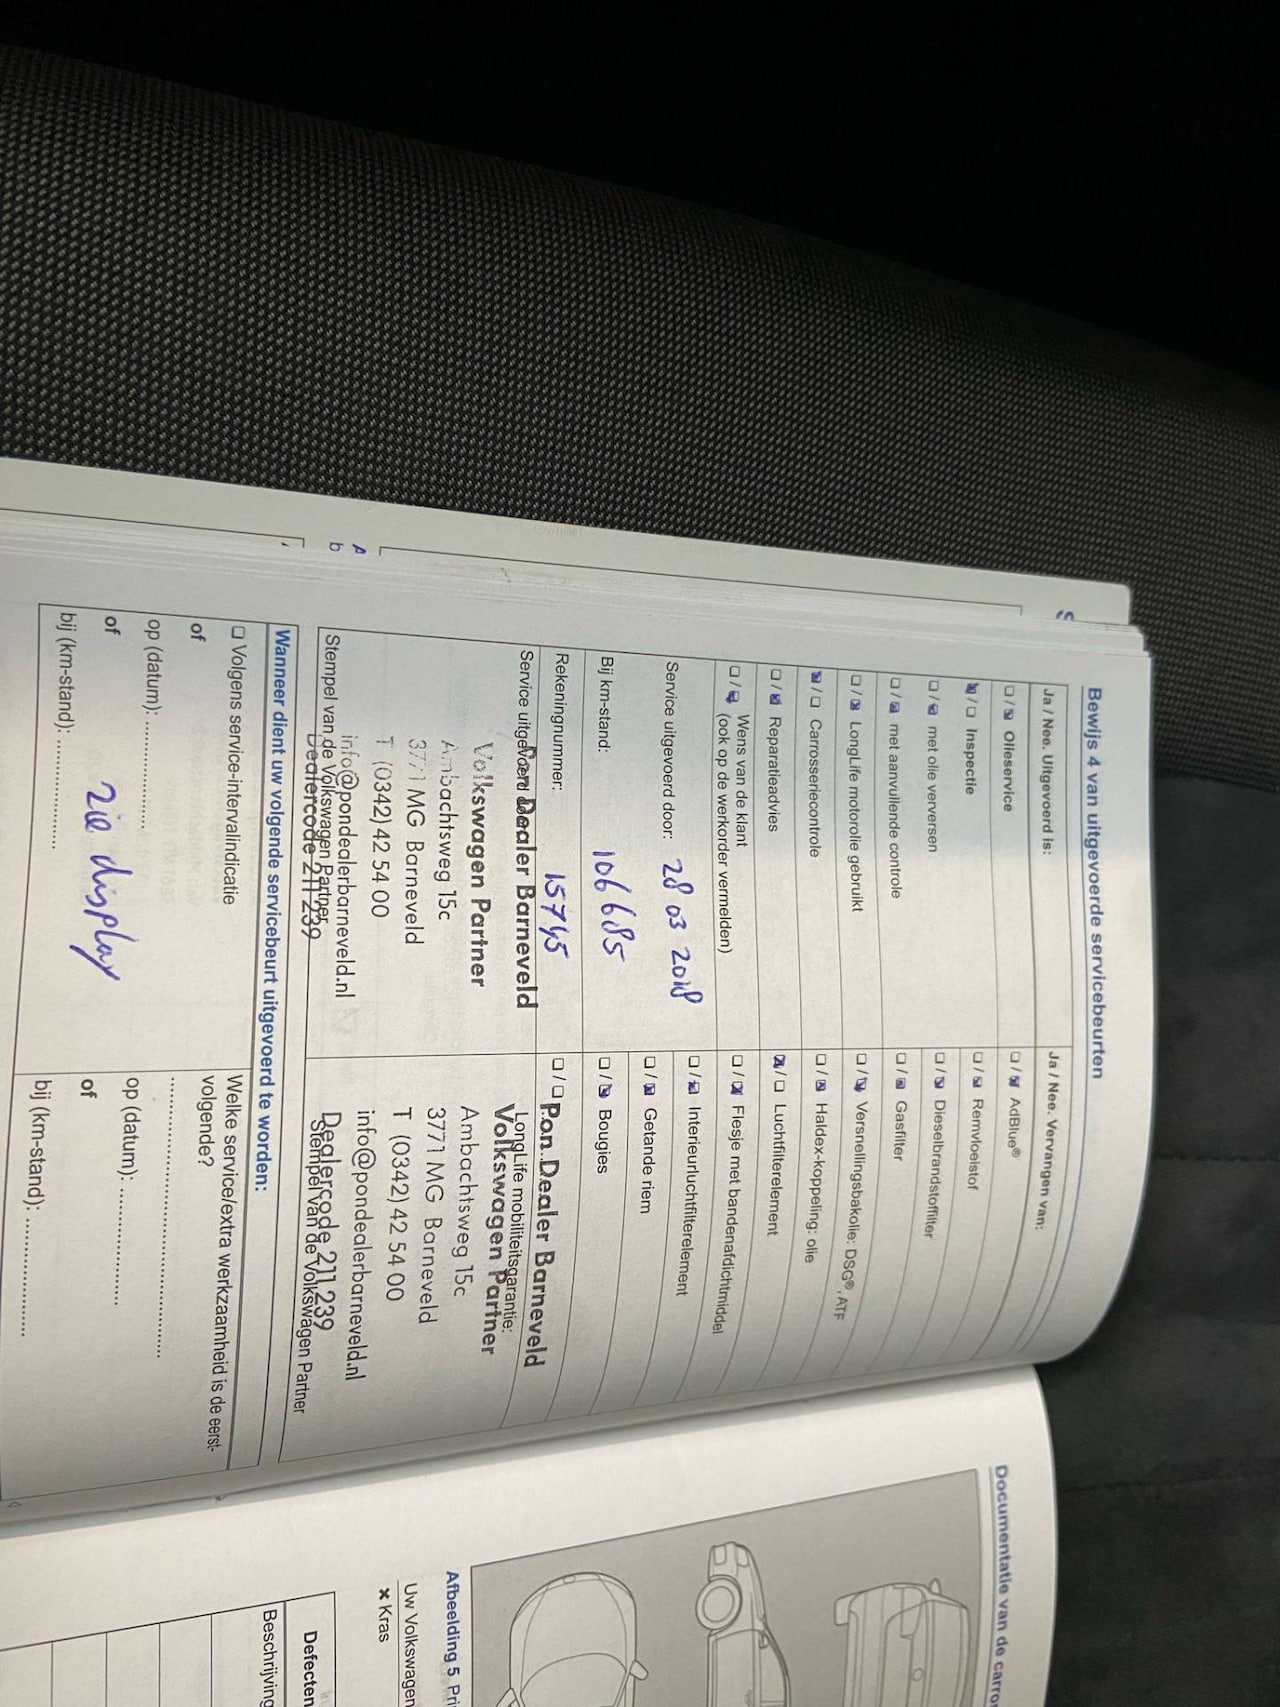 Bewijs 4 van uitgevoerde servicebeurten
Ja / Nee. Uitgevoerd is:
☐ / ☒ Olieservice
☒ / ☐ Inspectie
☐ / ☒ met olie verversen
☐ / ☒ met aanvullende controle
☐ / ☒ LongLife motorolie gebruikt
☒ / ☐ Carrosseriecontrole
☐ / ☒ Reparatieadvies
☐ / ☒ Wens van de klant
(ook op de werkorder vermelden)
Service uitgevoerd door: 28 03 2018
Bij km-stand: 106685
Rekeningnummer: 15745
Service uitgevoerd door:
Pon Dealer Barneveld
Volkswagen Partner
Ambachtsweg 15c
3771 MG Barneveld
T (0342) 42 54 00
info@pondealerbarneveld.nl
Dealercode 211.239
Stempel van de Volkswagen Partner
Ja / Nee. Vervangen van:
☐ / ☒ AdBlue®
☐ / ☒ Remvloeistof
☐ / ☒ Dieselbrandstoffilter
☐ / ☒ Gasfilter
☐ / ☒ Versnellingsbakolie: DSG®, ATF
☐ / ☒ Haldex-koppeling: olie
☒ / ☐ Luchtfilterelement
☐ / ☒ Flesje met bandenafdichtmiddel
☐ / ☒ Interieurluchtfilterelement
☐ / ☒ Getande riem
☐ / ☒ Bougies
☐ / ☐
Pon Dealer Barneveld
LongLife mobiliteitsgarantie:
Volkswagen Partner
Ambachtsweg 15c
3771 MG Barneveld
T (0342) 42 54 00
info@pondealerbarneveld.nl
Dealercode 211.239
Stempel van de Volkswagen Partner
Wanneer dient uw volgende servicebeurt uitgevoerd te worden:
☐ Volgens service-intervalindicatie
of
op (datum): ....................
of
zie display
bij (km-stand): ....................
Welke service/extra werkzaamheid is de eerst-
volgende?
....................
op (datum): ....................
of
bij (km-stand): ....................
Documentatie van de
Afbeelding 5
Uw Volkswagen
× Kras
Defecten
Beschrijving